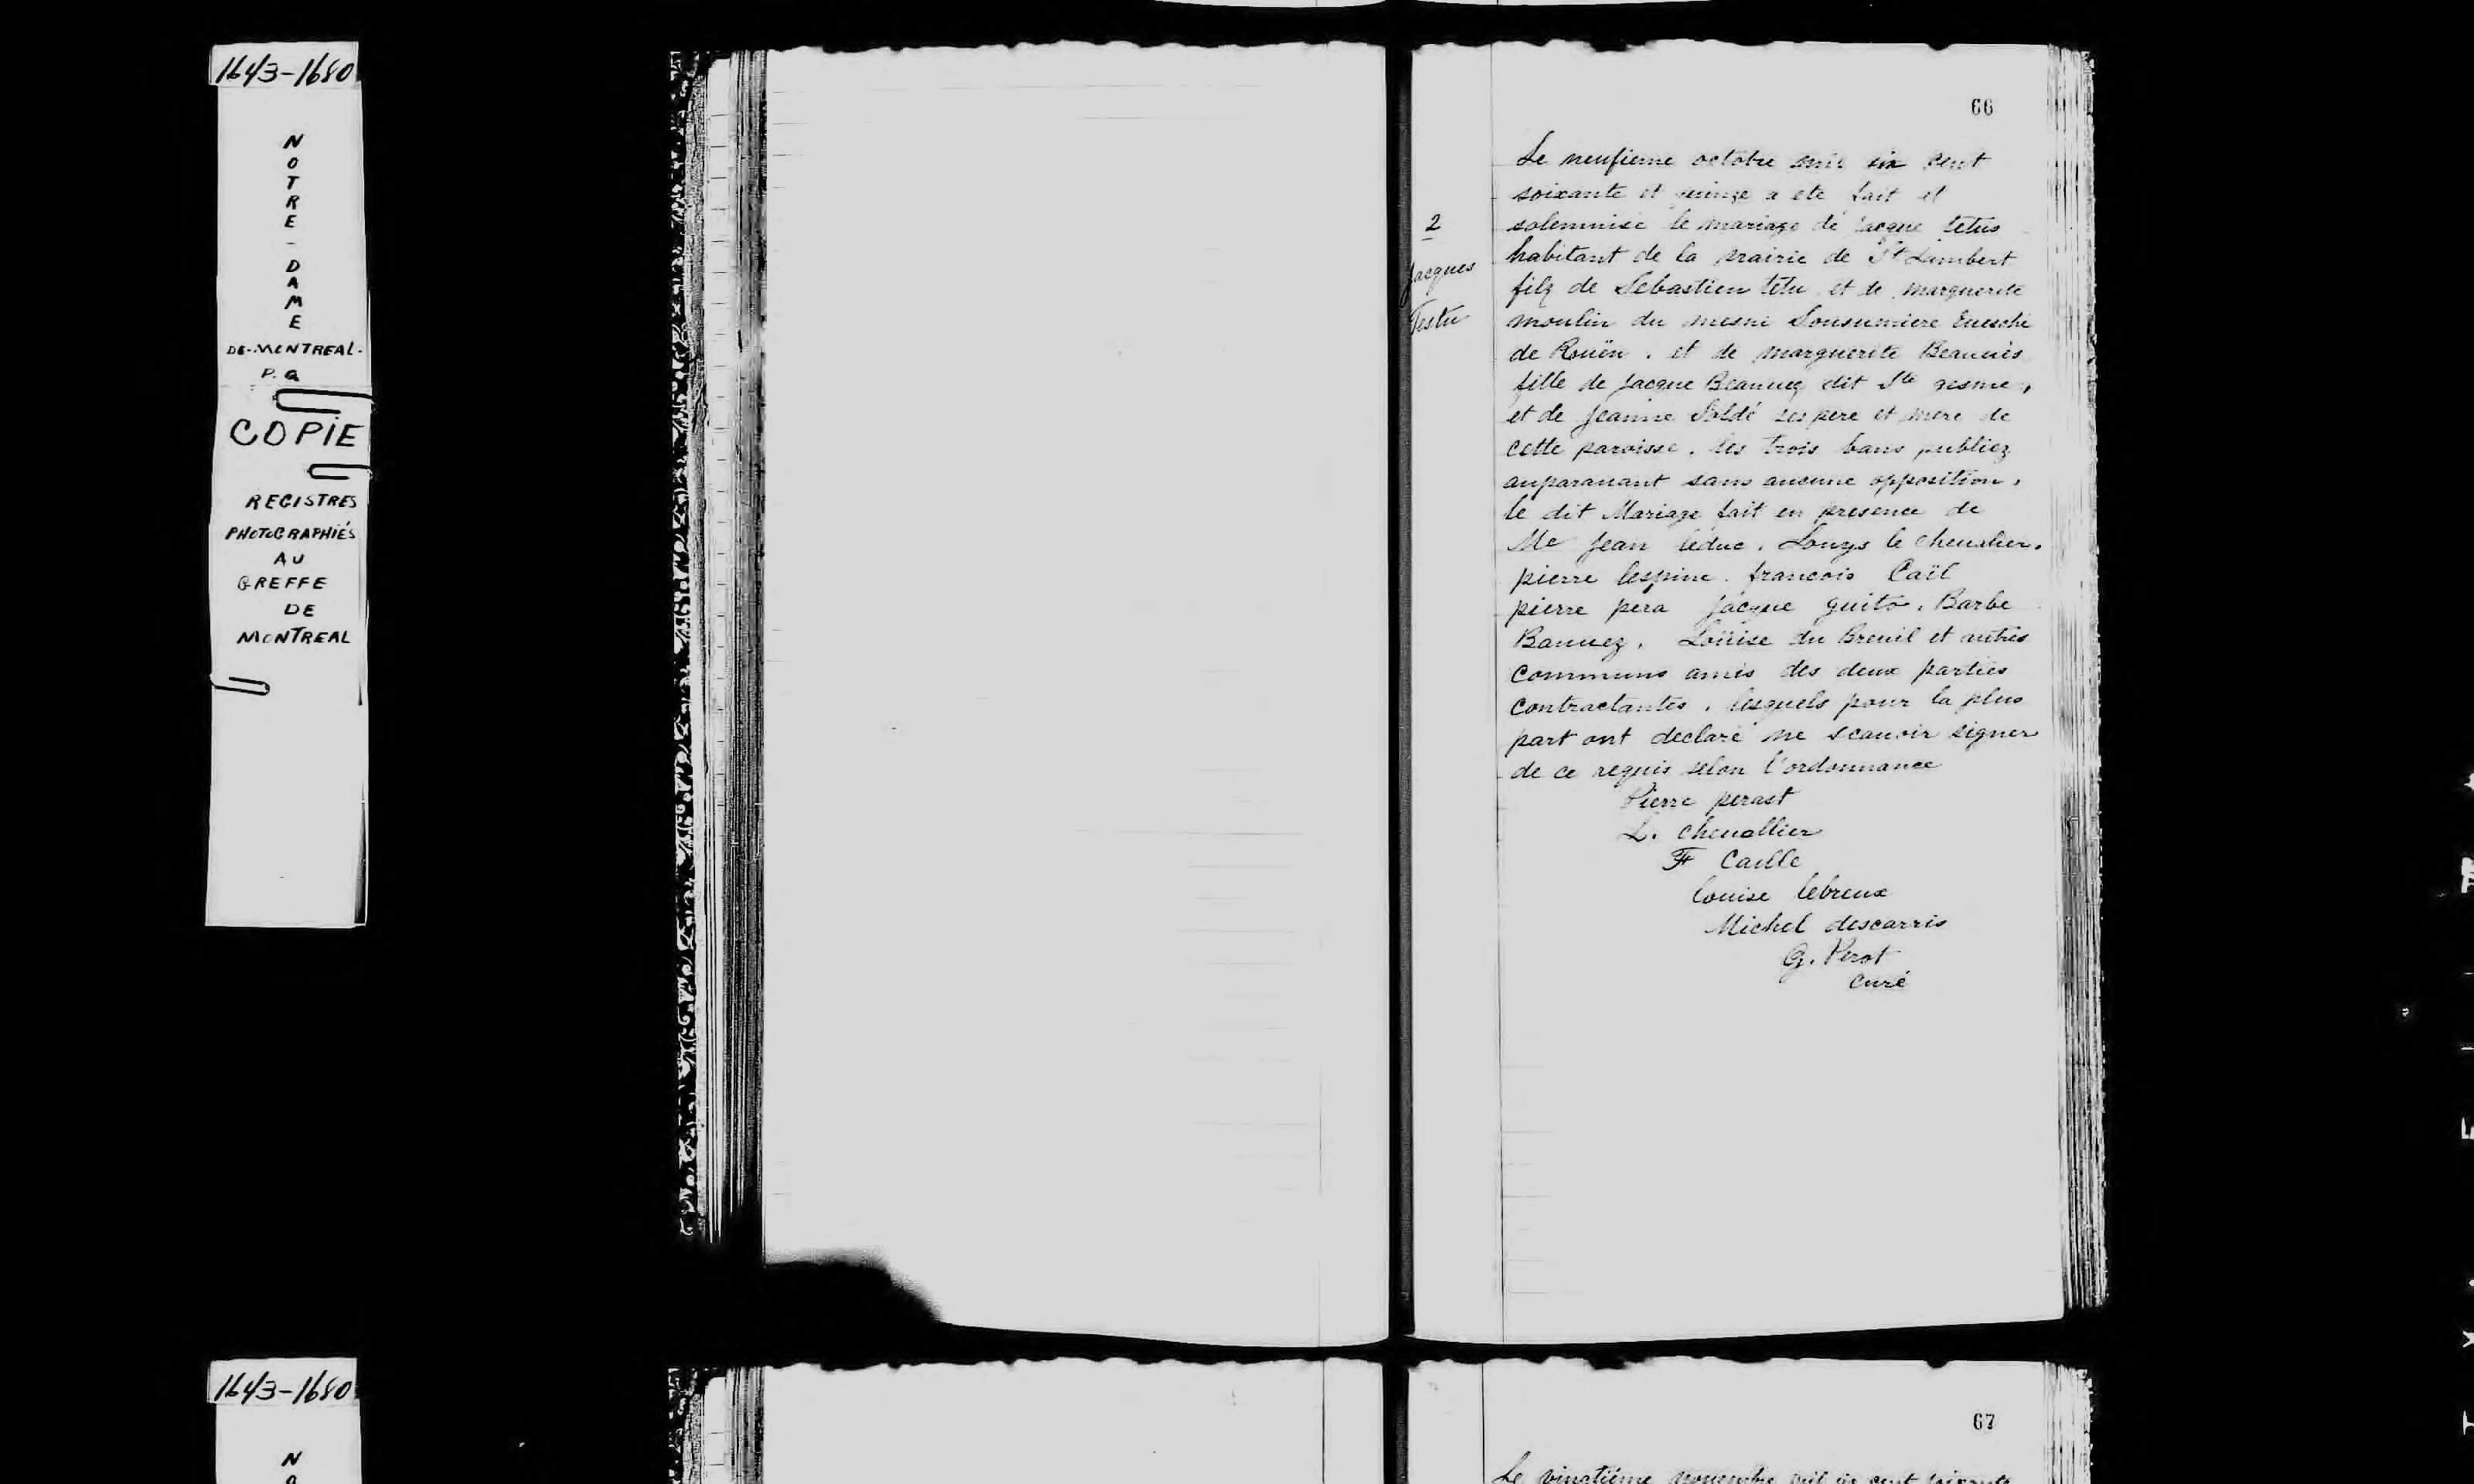 1643-1680
NOTRE-DAME
DE-MONTREAL-
P.Q
COPIE
REGISTRES
PHOTOGRAPHIÉS
AU
GREFFE
DE
MONTREAL
66
2
Jacques
Testu
Le neufieme octobre mil six cent
soixante et quinze a ete fait et
solemnise le mariage de Jacque tetus
habitant de la prairie de St Lambert
filz de Sebastien tetu et de marguerite
moulin du mesni Euesché
de Roüen . et de marguerite Beauvis
fille de Jacque dit Ste gesme,
et de Jeanne Soldé ses pere et mere de
cette paroisse . les trois bans publiez
auparauant sans aucune opposition,
le dit Mariage fait en presence de
Me Jean leduc . Louys le cheualier.
pierre lespine . francois Cail
pierre pera Jacque guito . Barbe
Louise du Breuil et autres
communs amis des deux parties
contractantes , lesquels pour la plus
part ont declaré ne scauoir signer
de ce requis selon l'ordonnance
Pierre perast
L. cheuallier
F Caille
louise lebreux
Michel descarris
G. Perot
curé
1643-1680
N
O
67
Le vingtiéme novembre mil six cent soixante